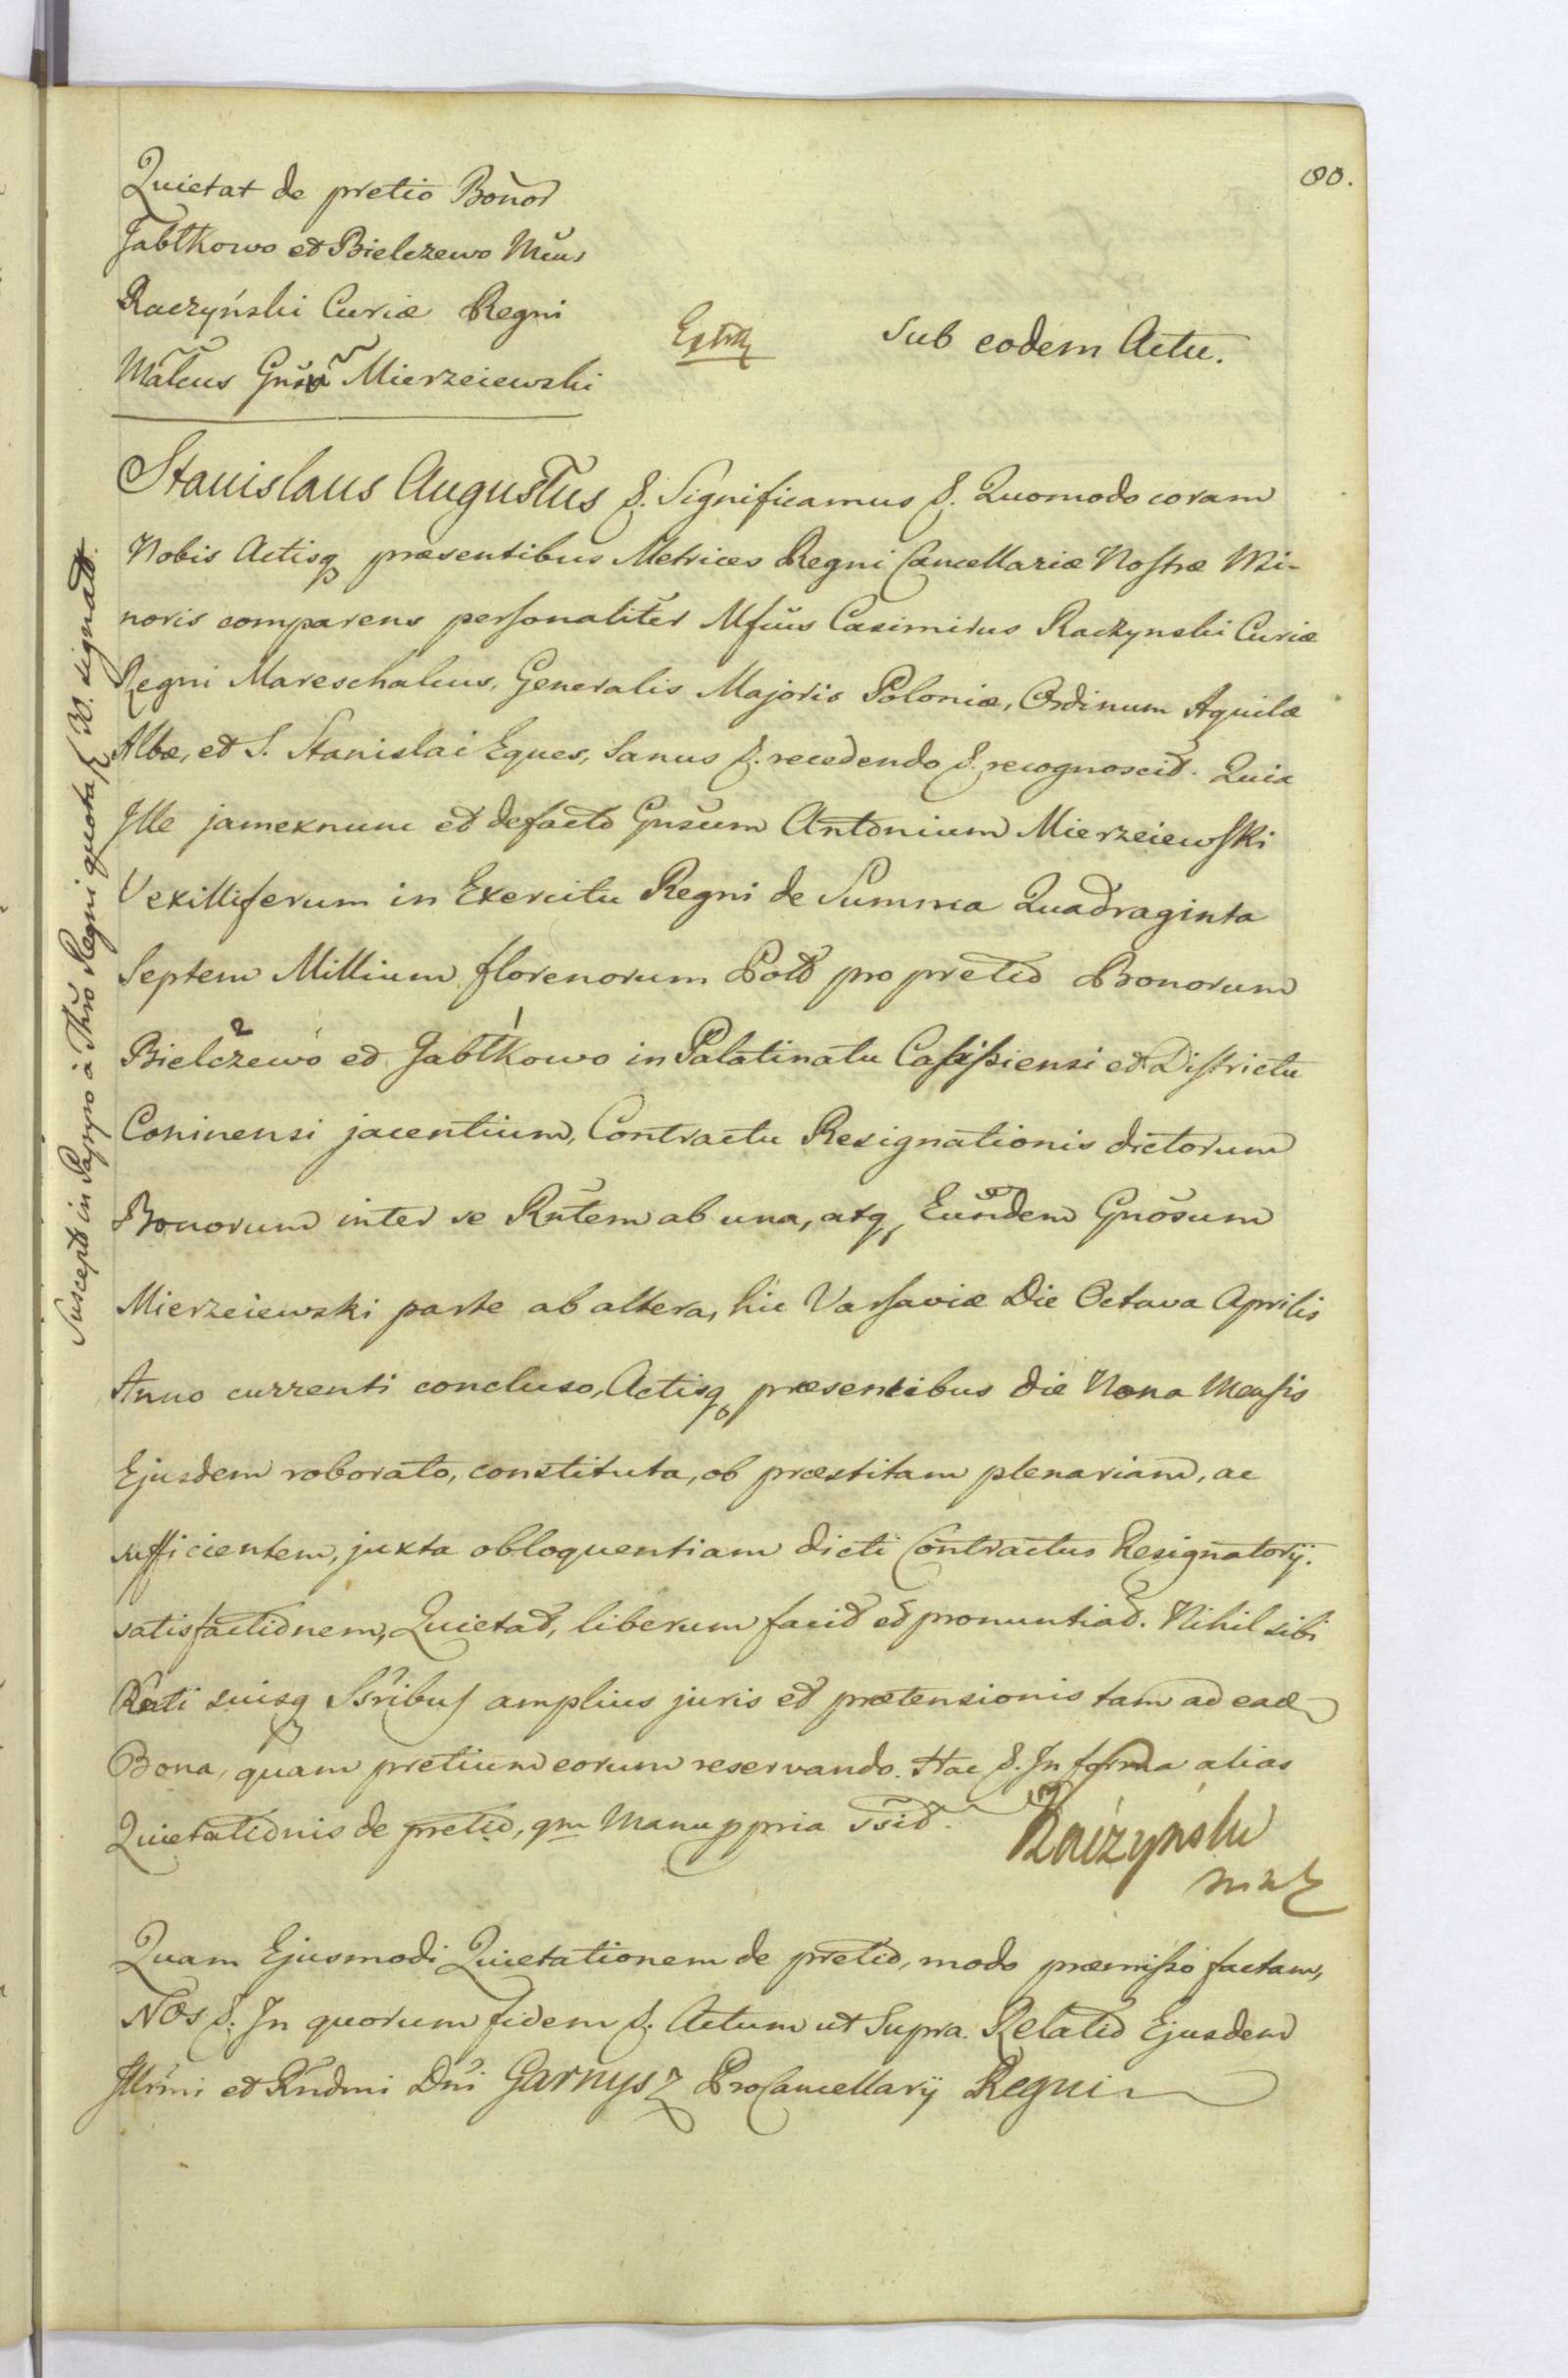 80.
Quietat de pretio Bonor
Jabłkowo et Bielczewo Mcus
Raczyński Curiæ Regni
Malcus Gnso Mierzeiewski
Extr
Sub eodem Actu.
Stanislaus Augustus &. Significamus &. Quomodo coram
Nobis Actisq præsentibus Metrices Regni Cancellariæ Nostræ Mi-
noris comparens personaliter Mfcus Casimirus Raczynski Curiæ
Regni Mareschalcus, Generalis Majoris Poloniæ, Ordinum Aquilæ
Albæ, et S. Stanislai Eques, Sanus &. recedendo &. recognoscit. Quia
Ille jamexnunc et defacto Gnsum Antonium Mierzeiewski
Vexilliferum in Exercitu Regni de Summa Quadraginta
Septem Millium florenorum Pold pro pretio Bonorum
2 1
Bielczewo et Jabłkowo in Palatinatu Calissiensi et Districtu
Coninensi jacentium, Contractu Resignationis dictorum
Bonorum inter se Rntem ab una, atq Eundem Gnosum
Mierzeiewski parte ab altera, hic Varsaviæ Die Octava Aprilis
Anno currenti concluso, Actisq præsentibus die Nona Mensis
Ejusdem roborato, constituta, ob præstitam plenariam, ac
sufficientem, juxta obloquentiam dicti Contractus Resignatorij.
satisfactionem, Quietat, liberum facit et pronuntiat. Nihil sibi
Rnti suisq Ssribus amplius juris et prætensionis tam ad ead
Bona, quam pretium eorum reservando. Hac &. In forma alias
Quietationis de pretio, qm Manu ppria ssit. Raczyński
mk
Quam Ejusmodi Quietationem de pretio, modo præmisso factam,
Nos &. In quorum fidem &. Actum ut Supra. Relatio Ejusdem
Illrmi et Rndmi Dni Garnysz ProCancellarij Regni
Suscept in Papyro à Thro Regni quota 30. signatt.